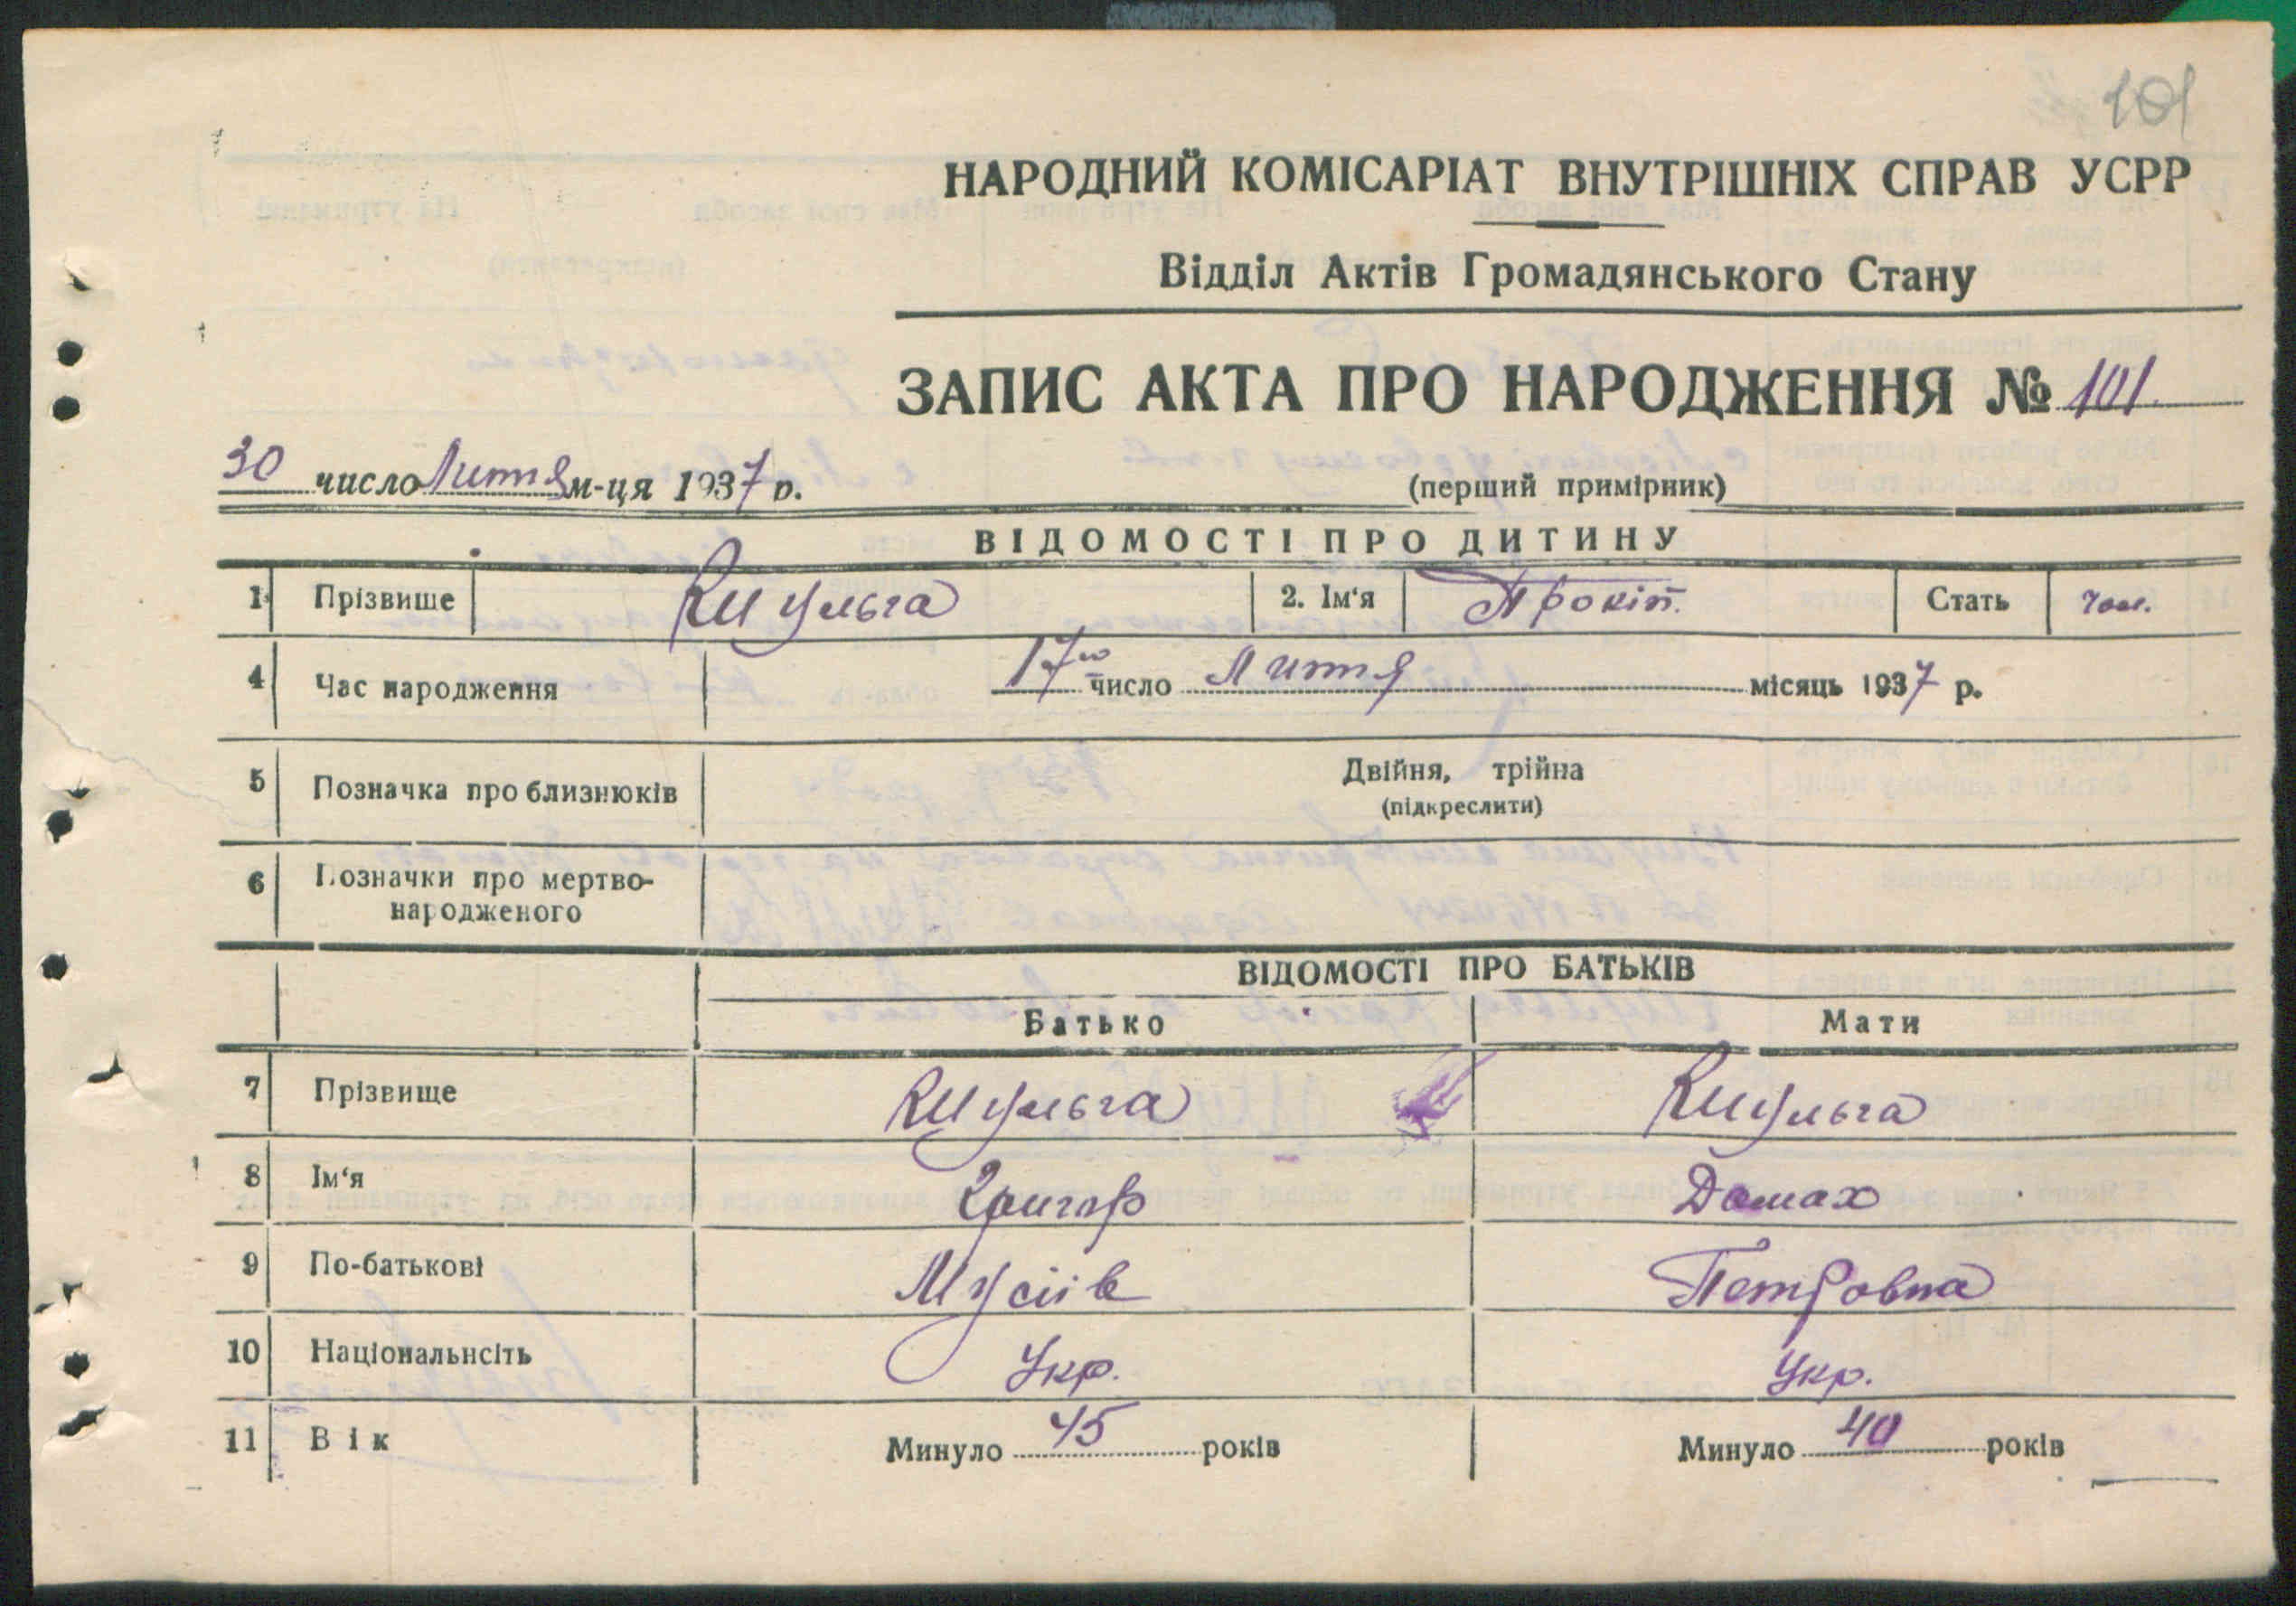 101
НАРОДНИЙ КОМІСАРІАТ ВНУТРІШНІХ СПРАВ УСРР
Відділ Актів Громадянського Стану
ЗАПИС АКТА ПРО НАРОДЖЕННЯ № 101.
30 число Липня м-ця 1937 р. (перший примірник)
ВІДОМОСТІ ПРО ДИТИНУ
1 Прізвище 2. Ім'я Прокіп. Стать чол.
4 Час народження 17го число Липня місяць 1937 р.
5 Позначка про близнюків Двійня, трійна
(підкреслити)
6 Позначки про мертво-
народженого
ВІДОМОСТІ ПРО БАТЬКІВ
Батько Мати
7 Прізвище
8 Ім'я Григор Домах
9 По-батькові Мусіїв Петровна
10 Національнсіть Укр. Укр.
11 Вік Минуло 45 років Минуло 40 років